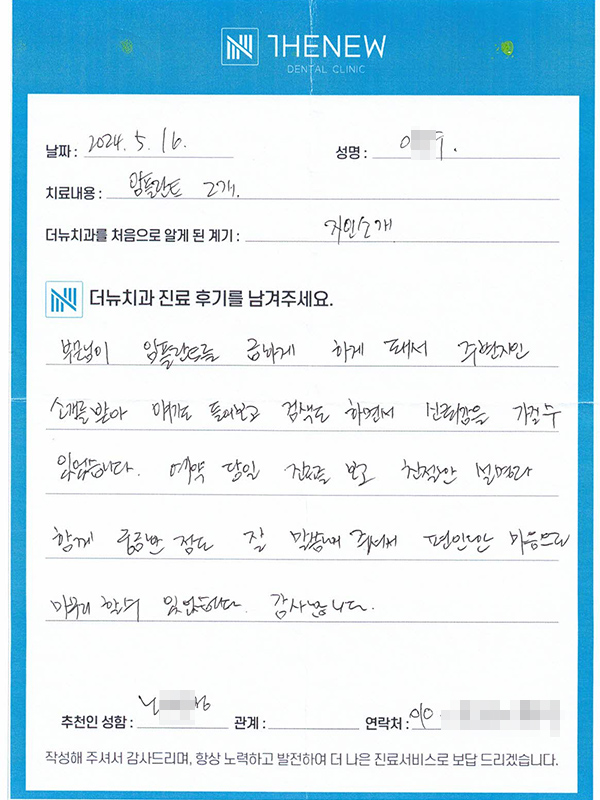 THENEW
DENTAL CLINIC
날짜 : 2024. 5. 16. 성명 :
치료내용 : 임플란트 2개.
더뉴치과를 처음으로 알게 된 계기 : 지인소개
더뉴치과 진료 후기를 남겨주세요.
부모님이 임플란트를 급하게 하게 돼서 주변지인
소개를 받아 얘기도 들어보고 검색도 하면서 신뢰감을 가질수
있었습니다. 예약 당일 진료를 보고 친절한 설명과
함께 궁금한 점도 잘 말씀해 주셔서 편안한 마음으로
마무리 할수 있었습니다. 감사합니다.
추천인 성함 : 관계 : 연락처 : 010
작성해 주셔서 감사드리며, 항상 노력하고 발전하여 더 나은 진료서비스로 보답 드리겠습니다.